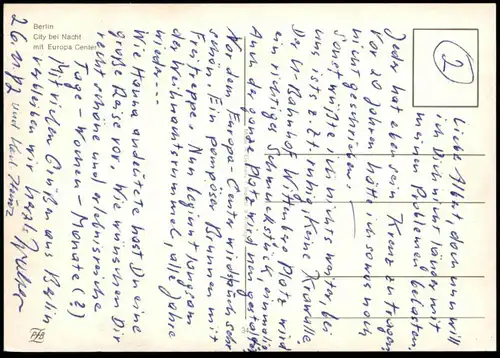 Berlin
City bei Nacht
mit Europa Center
2
Lieber Albert, doch nun will
ich Dich nicht länger mit
meinen Problemen belasten.
Jeder hat eben sein Kreuz zu tragen.
Vor 20 Jahren hätte ich sowas noch
nicht geschrieben.
Sonst wüßte ich nichts weiter bei
uns ists z.Zt. ruhig, keine Krawalle
Der U-Bahnhof Wittenberg Platz wird
ein richtiges Schmuckstück, einmalig
Auch der ganze Platz wird neu gestaltet
Vor dem Europa-Center wird auch sehr
schön. Ein pompöser Brunnen mit
Freitreppe. Nun beginnt langsam
der Weihnachtsrummel, alle Jahre
wieder...
Wie Hanna andeutete hast Du eine
große Reise vor. Wir wünschen Dir
recht schöne und erlebnisreiche
Tage - Wochen - Monate (?)
Mit vielen Grüßen aus Berlin
verbleiben wir herzl.
und Karl Heinz
PfB